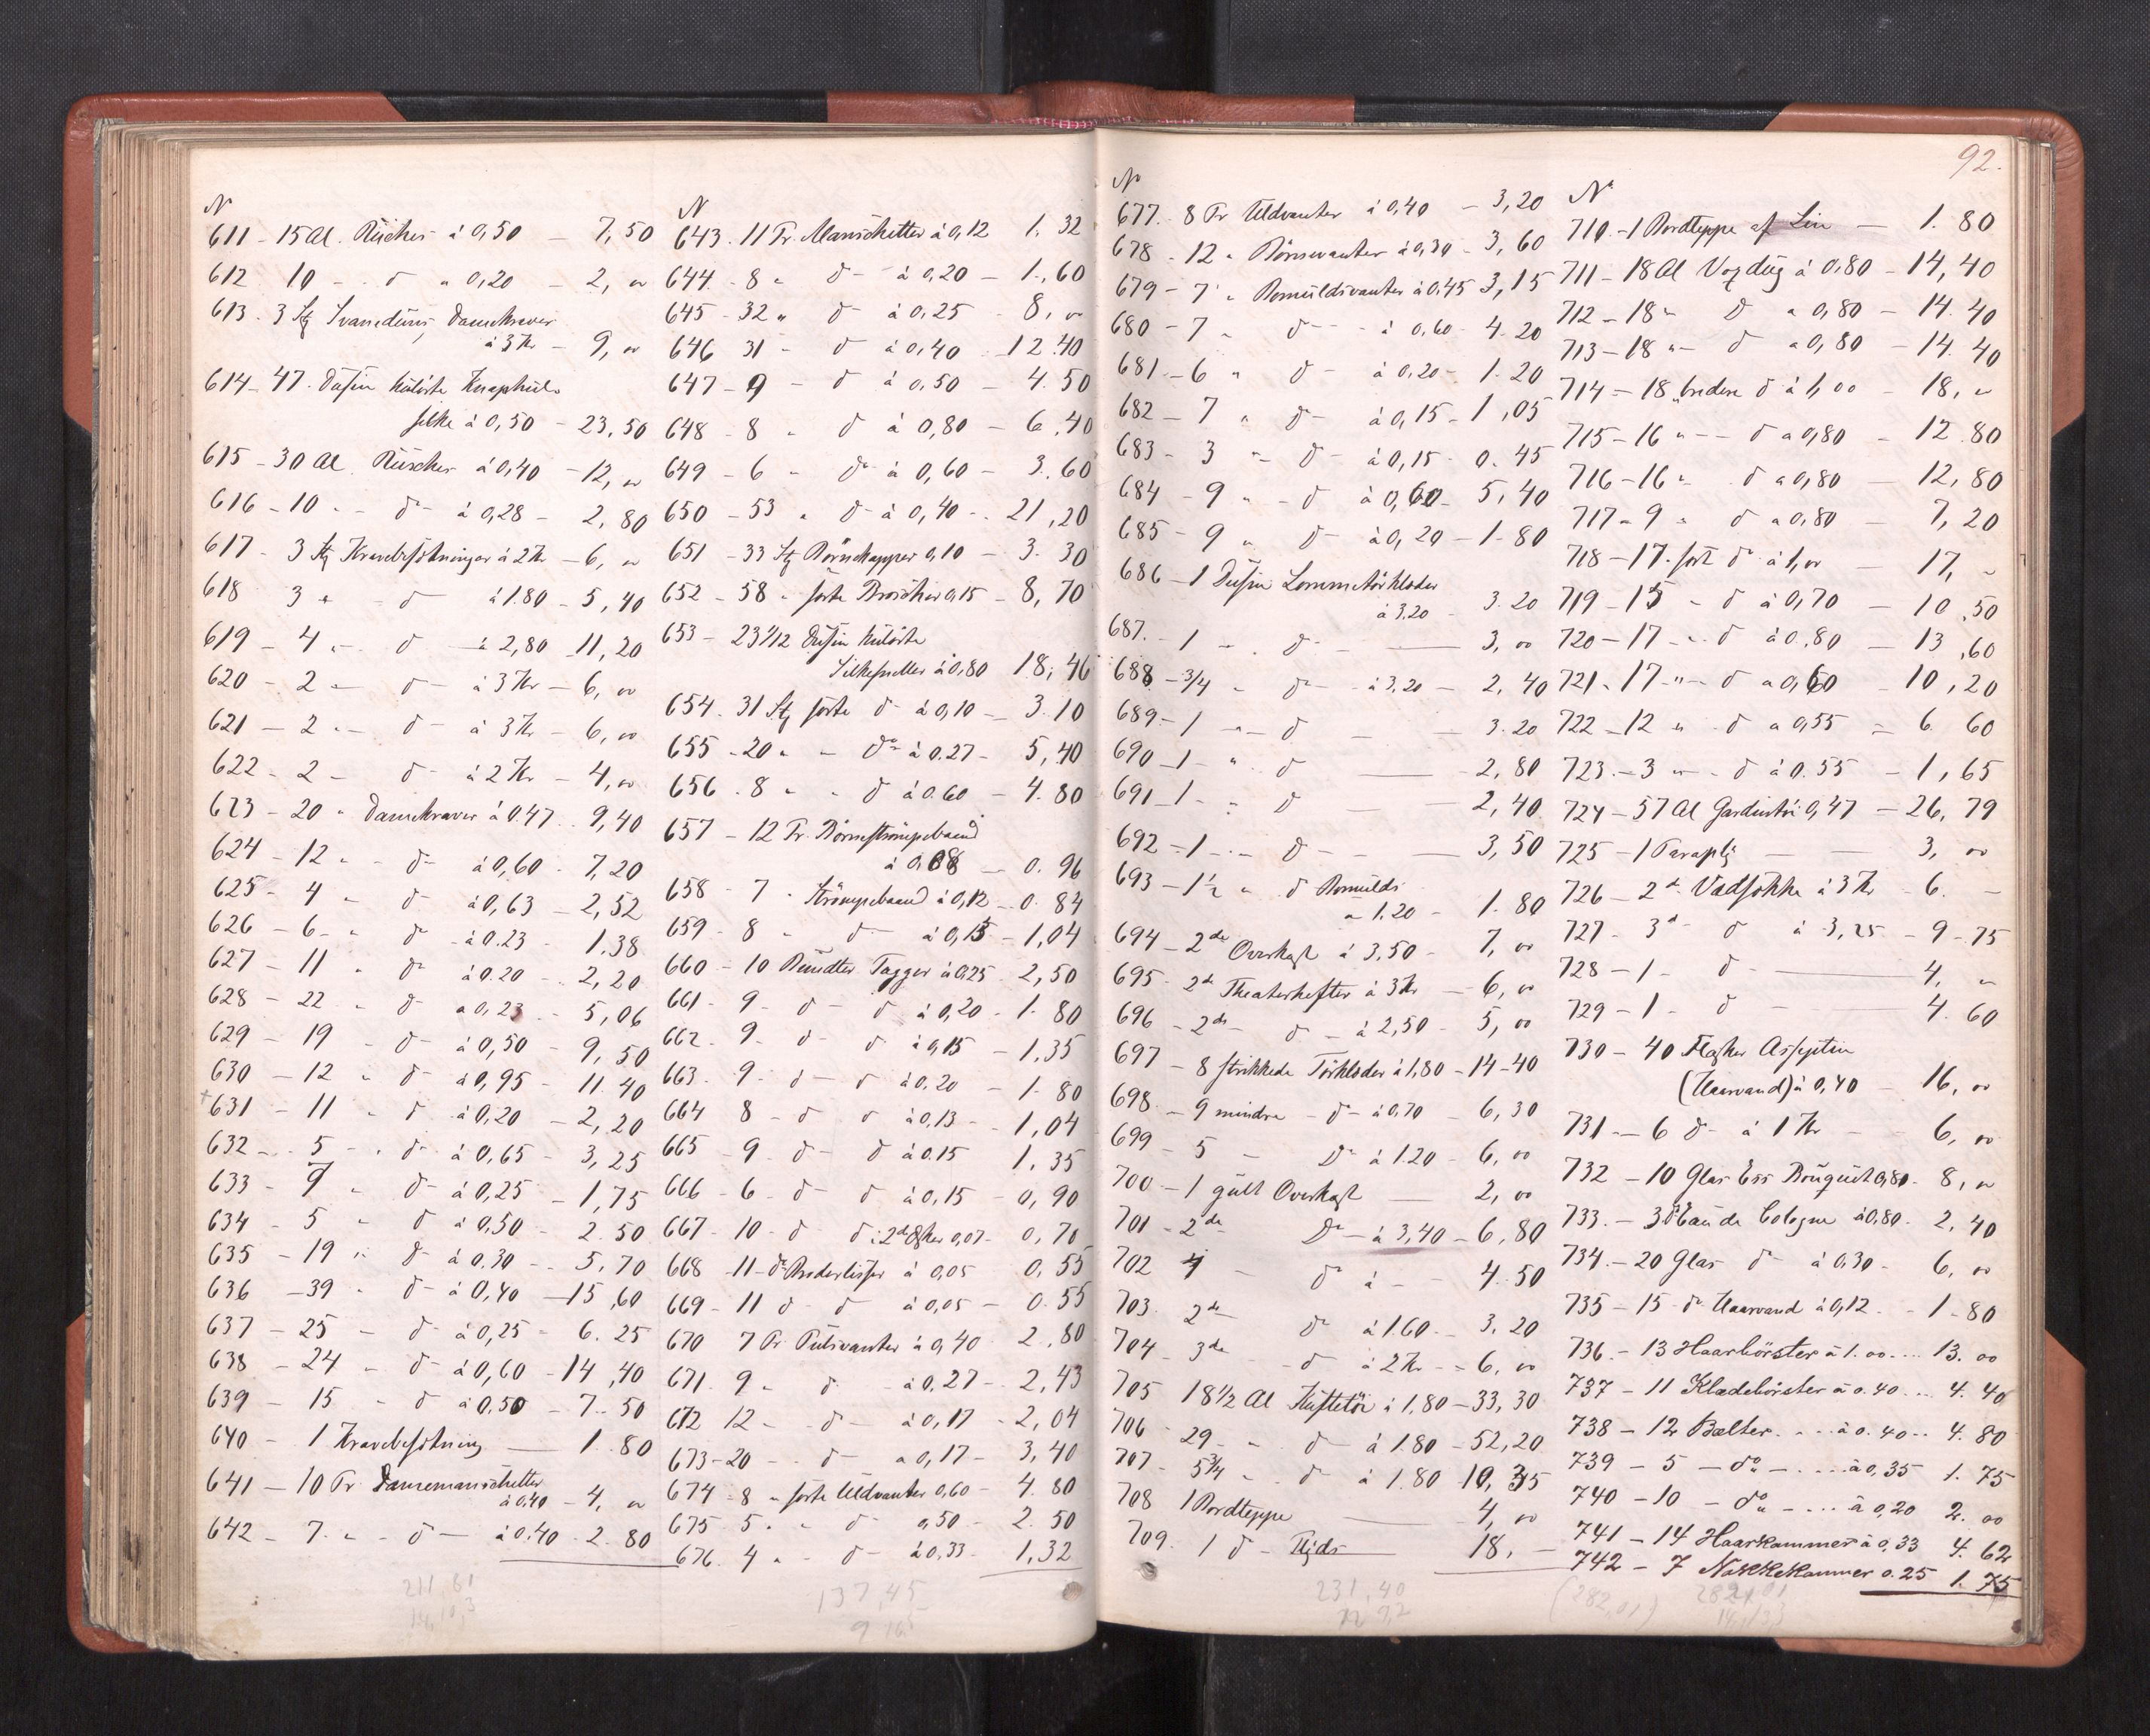 N
611 - 15 Al. Rücher à 0,50 - 7,50
612 10 - - d a 0,20 - 2, 00
613 - 3 Stg Svanedüns Damekraver
à 3 Kr - 9, 00
614 - 47 Düsin kulörte Knaphül-
silke à 0,50 - 23,50
615 - 30 Al Rüscher à 0,40 - 12, 00
616 - 10 - - do - à 0,28 - 2,80
617 - 3 Stg Kravebesötninger à 2 Kr - 6, 00
618 3 " - d à 1.80 - 5,40
619 - 4 " - d - à 2,80 11,20
620 - 2 - d - à 3 Kr - 6, 00
621 - 2 " - d - à 3 Kr - 6, 00
622 - 2 - d - à 2 Kr - 4, 00
623 - 20 " Damekraver à 0.47 - 9,40
624 - 12 " - d - à 0,60 - 7.20
625 - 4 " d - à 0,63 - 2,52
626 - 6 - " d - à 0.23 - 1.38
627 - 11 " do à 0.20 - 2,20
628 - 22 " d - a 0,23 - 5,06
629 - 19 - d - à 0,50 - 9,50
630 - 12 " d - à 0,95 - 11.40
+ 631 - 11 " d à 0,20 - 2,20
632 - 5 - " d - à 0,65 - 3,25
633 - 7 " d - à 0,25 - 1,75
634 - 5 " d à 0,50 - 2.50
635 - 19 " d - à 0.30 - 5.70
636 - 39 " d - à 0,40 - 15,60
637 - 25 - d - à 0,25 - 6.25
638 - 24 " d - à 0,60 - 14,40
639 - 15 " d à 0.50 - 7.50
640 - 1 Kravebesötning - 1.80
641 - 10 Pr Damemanschetter
à 0,40 - 4, 00
642 - 7 " - d - à 0.40 - 2.80
211,81
N
643 - 11 Pr. Manschetter à 0,12 1.32
644 - 8 " d - à 0,20 - 1.60
645 - 32 " d - à 0,25 - 8, 00
646 31 - d à 0,40 - 12.40
647 - 9 - d à 0,50 - 4.50
648 - 8 " d à 0,80 - 6.40
649 - 6 - do à 0,60 - 3.60
650 - 53 " d - à 0,40 - 21,20
651 - 33 Stg Börnekapper 0,10 - 3.30
652 - 58 " sorte Broscher 0,15 - 8,70
653 - 23 1/12 Düsin kulörte
Silkeseller à 0,80 18,46
654 - 31 Stg sorte d - à 0,10 - 3.10
655 - 20 " - do - à 0.27 - 5,40
656 - 8 " - d à 0.60 - 4.80
657 - 12 Pr. Börneströmpebaand
à 0,08 - 0.96
658 - 7 " Strömpebaand à 0,12 - 0.84
659 - 8 " d - à 0,13 - 1,04
660 - 10 Bündter Tagger à 0,25 2,50
661 - 9 - d - d à 0,20 - 1.80
662 - 9 - d - d à 0,15 - 1.35
663 - 9 - d - d à 0.20 - 1.80
664 8 - d d à 0,13 - 1,04
665 - 9 - d - d à 0.15 1,35
666 - 6 - d - d à 0,15 - 0,90
667 - 10 - d - d 0,07 - 0,70
668 - 11 - do Broderlisser à 0,05 0,55
669 - 11 d - d à 0,05 - 0.55
670 7 Pr Pülsvanter à 0,40 - 2.80
671 9 " d à 0.27 - 2,43
672 12 - - d - à 0,17 - 2,04
673 - 20 - - d - a 0,17 - 3,40
674 - 8 " sorte Uldvanter 0.60 - 4.80
675 5 " - d - 0,50 - 2.50
676 4 " - d - à 0,33 - 1,32
137,45
92.
No
677 - 8 Pr Uldvanter à 0,40 - 3,20
678 - 12 " Börnevanter à 0,30 - 3,60
679 - 7 " Bomüldsvanter à 0.45 3,15
680 - 7 " d - - à 0,60 - 4.20
681 - 6 " d - à 0,20 - 1.20
682 - 7 " d - à 0,15 - 1,05
683 - 3 " d - à 0,15 - 0.45
684 - 9 " - d à 0,60 - 5,40
685 - 9 " d - à 0,20 - 1.80
686 - 1 Düsin Lommetörklæder
à 3.20 - 3.20
687. - 1 - " d - - 3, 00
688 - 3/4 " do - à 3.20 - 2,40
689 - 1 - " - d - 3.20
690 - 1 - " d - 2,80
691 - 1 - " d - 2,40
692 - 1 - - d - - 3,50
693 - 1 1/2 " d Bomülds
à 1.20 - 1.80
694 - 2 de Overkast à 3.50 - 7, 00
695 - 2 de Theaterhefter à 3 Kr - 6, 00
696 - 2 de - d - à 2,50 - 5, 00
697 - 8 strikkede Törklæder à 1,80 - 14-40
698 - 9 mindre - d - à 0.70 - 6,30
699 - 5 - Do à 1.20 - 6, 00
700 - 1 gült Overkast - 2, 00
701 - 2 de Do - à 3,40 - 6,80
702 1 - do à - - 4.50
703 2 de do à 1.60 - 3.20
704 - 3 de - d à 2 Kr - - 6, 00
705 18 1/2 Al Küftetöi à 1,80 - 33,30
706 29 - " d à 1.80 - 52,20
707 - 5 3/4 " - d - à 1.80 10,35
708 1 Bordteppe - 4, 00
709 - 1 d - 18, -
231,40
No
710 - 1 Bordteppe af Lin - 1.80
711 - 18 Al Voxdüg à 0,80 - 14,40
712 - 18 " d a 0,80 - 14.40
713 - 18 " - d a 0,80 - 14.40
714 - 18 " bredere d à 1,00 - 18, -
715 - 16 " - - d a 0,80 - 12.80
716 - 16 " - d a 0,80 - 12,80
717 - 9 " d a 0,80 - 7,20
718 - 17 - sort do à 1,00 - 17, -
719 - 15 - d à 0,70 - 10.50
720 - 17 - " d à 0.80 - 13,60
721 - 17 - " - d a 0,60 - 10,20
722 - 12 " - d a 0,55 - 6.60
723 - 3 " - d à 0.55 - 1,65
724 - 57 Al Gardintöi 0,47 - 26,79
725 - 1 Paraply - 3, 00
726 - 2 d - Vadsökke à 3 Kr - 6. -
727 - 3 d - d à 3,25 - 9-75
728 - 1 - d - 4, -
729 - 1 - d - 4.60
730 - 40 Flasker Asseptin
(Haarvand) à 0,40 - 16, 00
731 - 6 d - à 1 Kr - 6, 00
732 - 10 Glas Ess Bouquet 0,80 - 8, 00
733 - 3 d Eau de Cologne à 0,80 - 2,40
734 - 20 Glas d - à 0,30 - 6, 00
735 - 15 - do Haarvand à 0,12 - 1-80
736 - 13 Haarbörster à 1.00 ... 13.00
737 - 11 Klædebörster à 0.40 ... 4.40
738 - 12 Bælter. ... à 0.40 .. 4.80
739 - 5 - do - .... à 0,35 1.75
740 - 10 - do - ... à 0,20 2.00
741 - 14 Haarkammer à 0.33 4.62
742 - 7 Nakkekammer 0.25 1.75
(282,01)